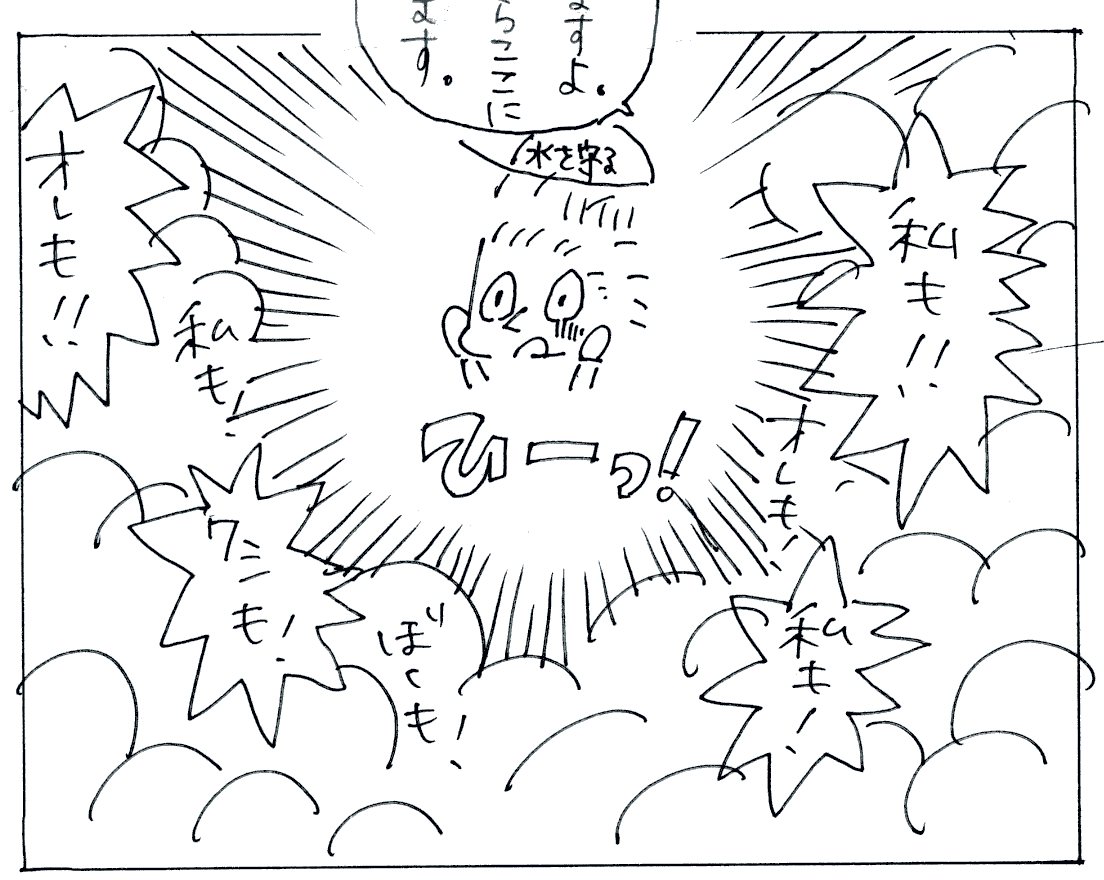 ますよ。
らここに
ます。
水を守る
私も!!
オレも!
私も!
ひーっ!
オレも!!
私も!
ワシも!
ぼくも!